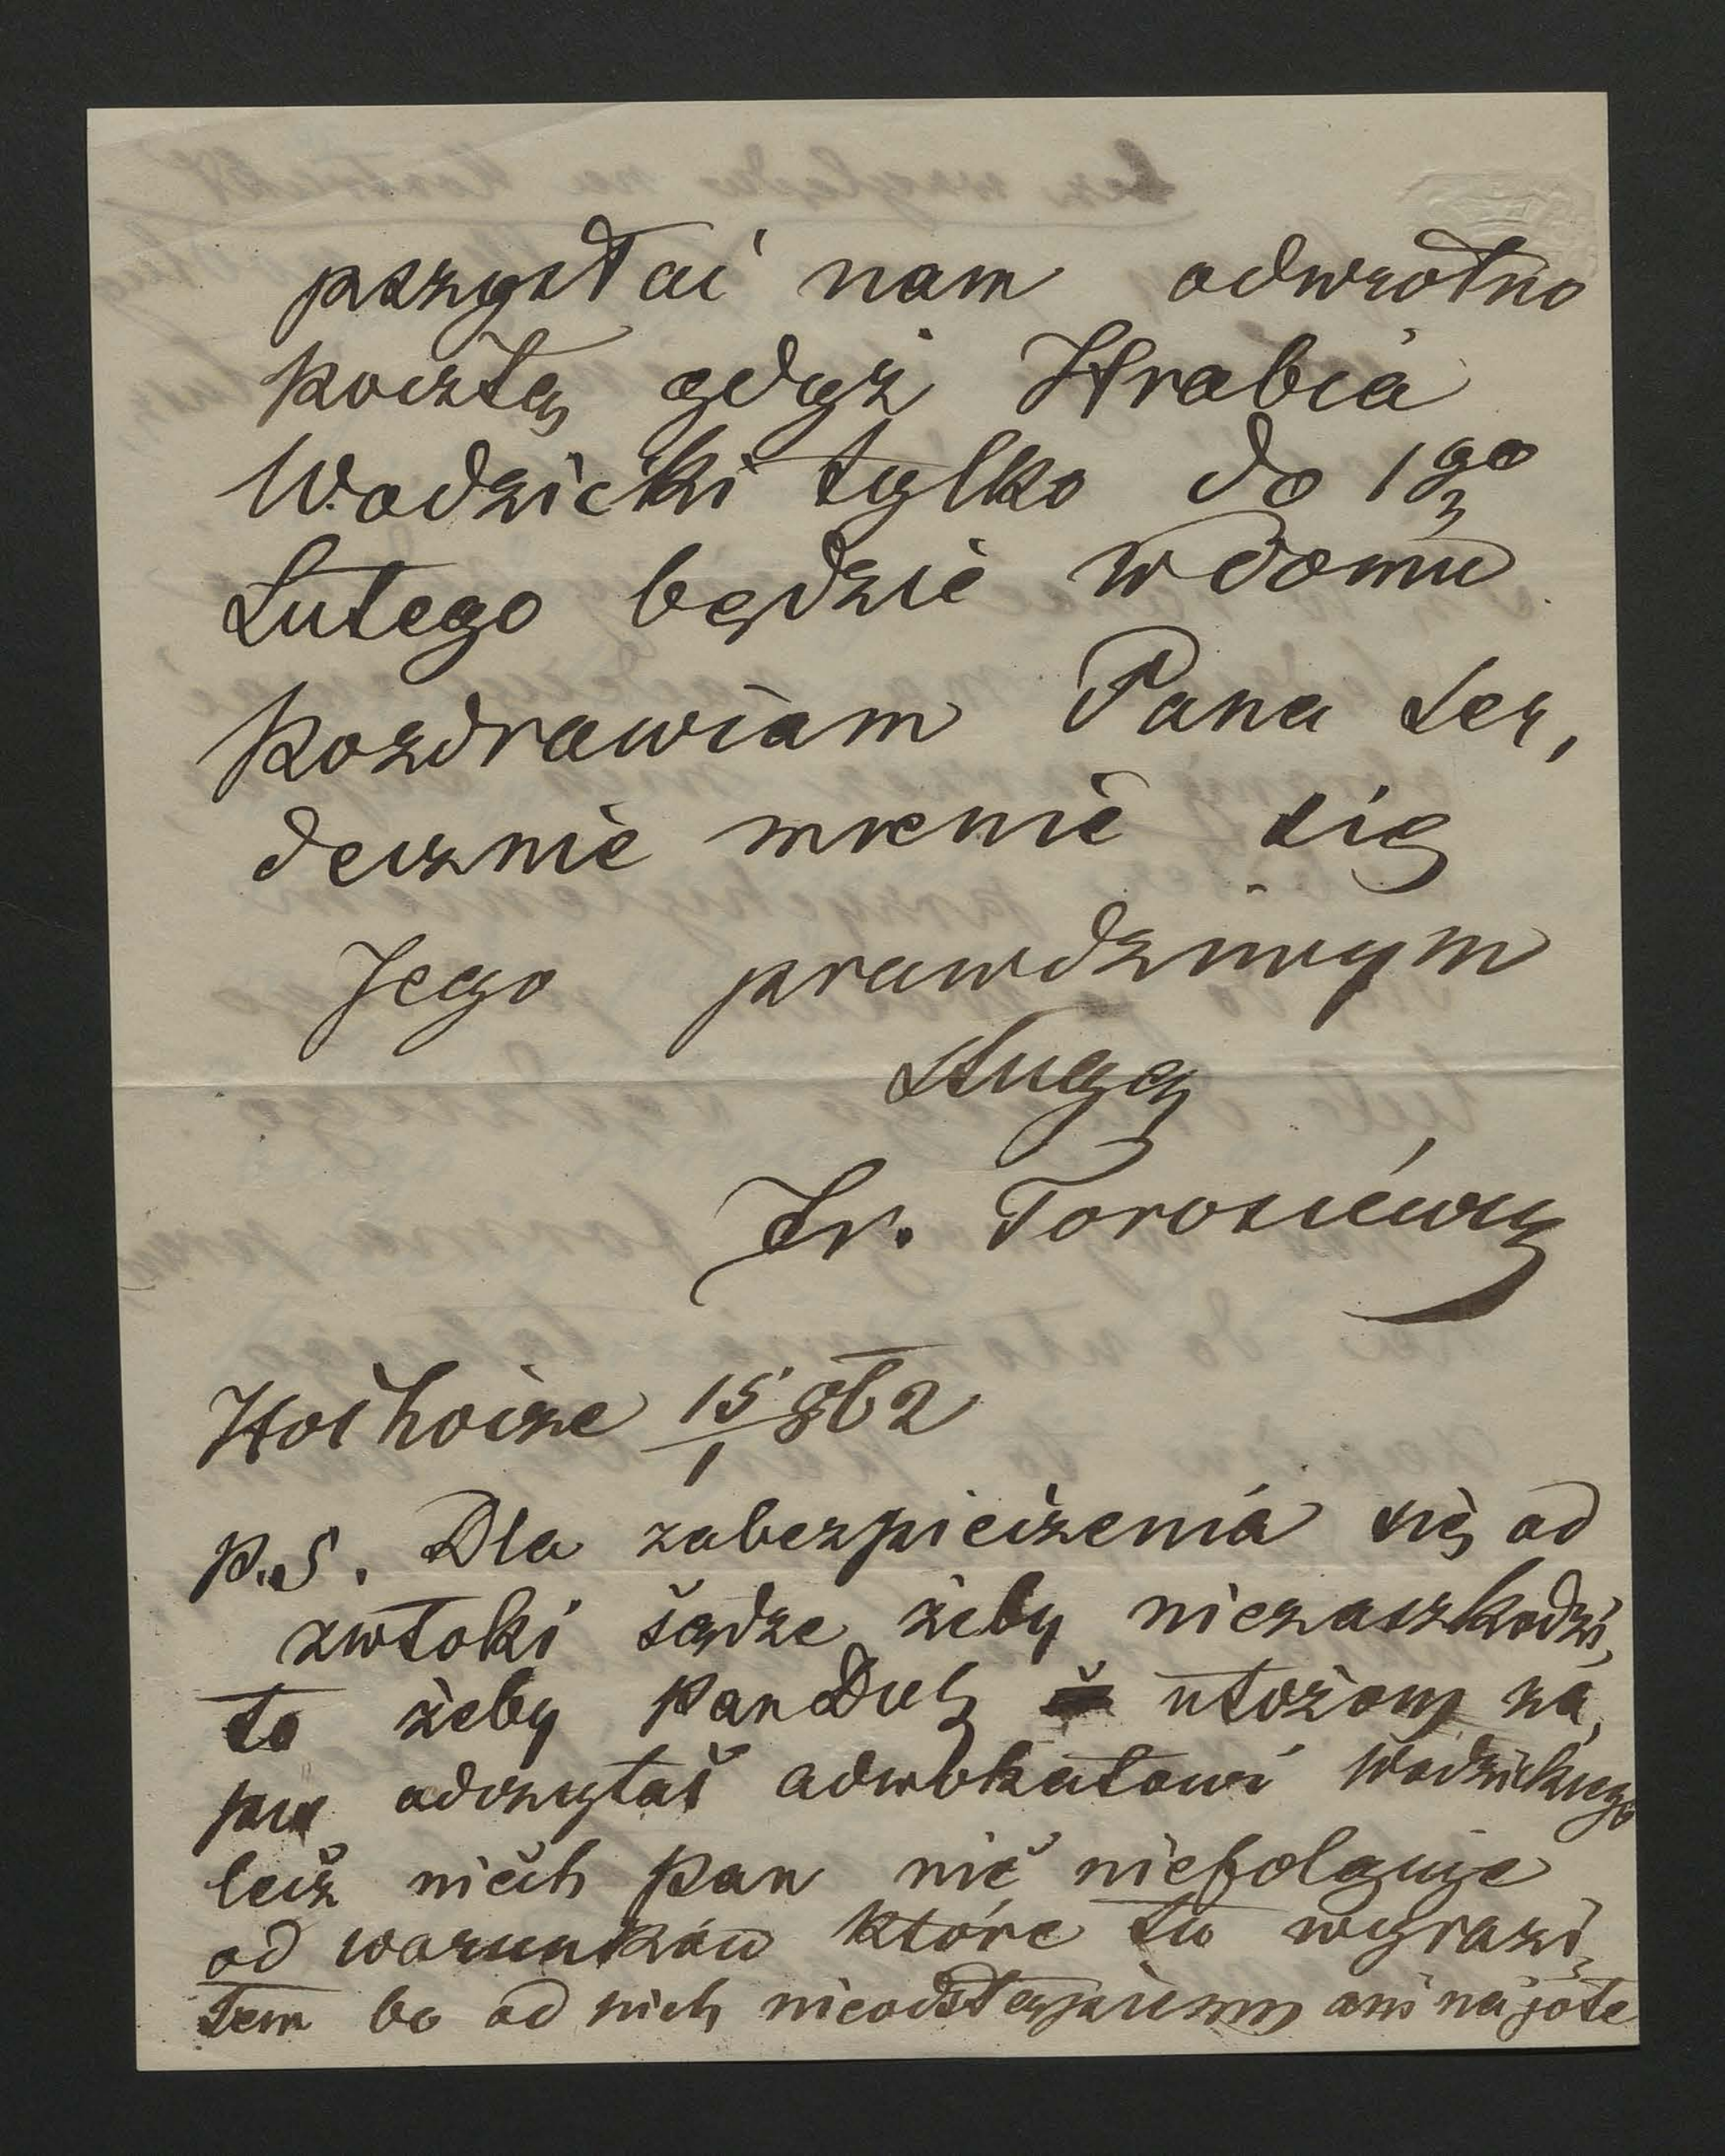 przysłać nam odwrotno
pocztą gdyż Hrabia
Wodzicki tylko do 1go
Lutego będzie w domu
Pozdrawiam Pana ser,
decznie mienie się
Jego prawdziwym
sługą
Fr. Torosiewicz
15/1 862
P.S. Dla zabezpieczenia się od
zwłoki sądze żeby niezaszkodzi,
ło żeby Pan Duch ułożony za,
pis odczytał adwokatowi Wodzickiego
lecz niech Pan nić niefolguje
od warunków które tu wyrazi,
łem bo od nich nieodstąpiemy ani na jote